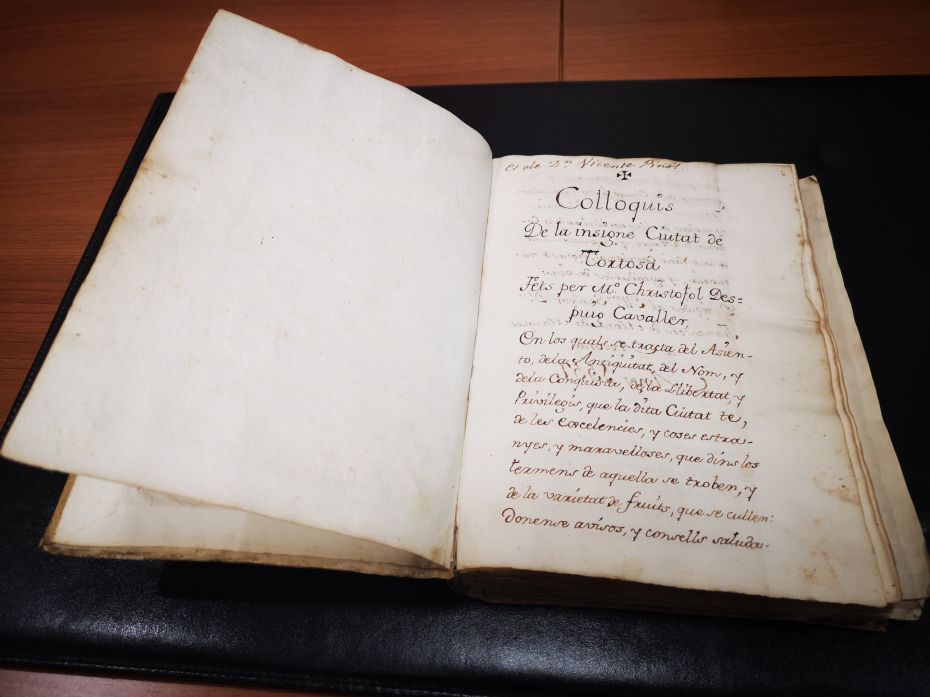 es de Dn Vicente Pinós
Colloquis
De la insigne Ciutat de
Tortosa
Fets per Mo. Christofol Des=
puig Cavaller
En los quals se tracta del Asien-
to, dela Antiguitat, del Nom, y
dela Conquista, de la Llibertat, y
Privilegis, que la dita Ciutat te,
de les Excelencies, y coses estra-
nyes, y maravelloses, que dins los
termens de aquella se troben, y
de la varietat de fruits, que se cullen:
Donense avisos, y consells saluda-